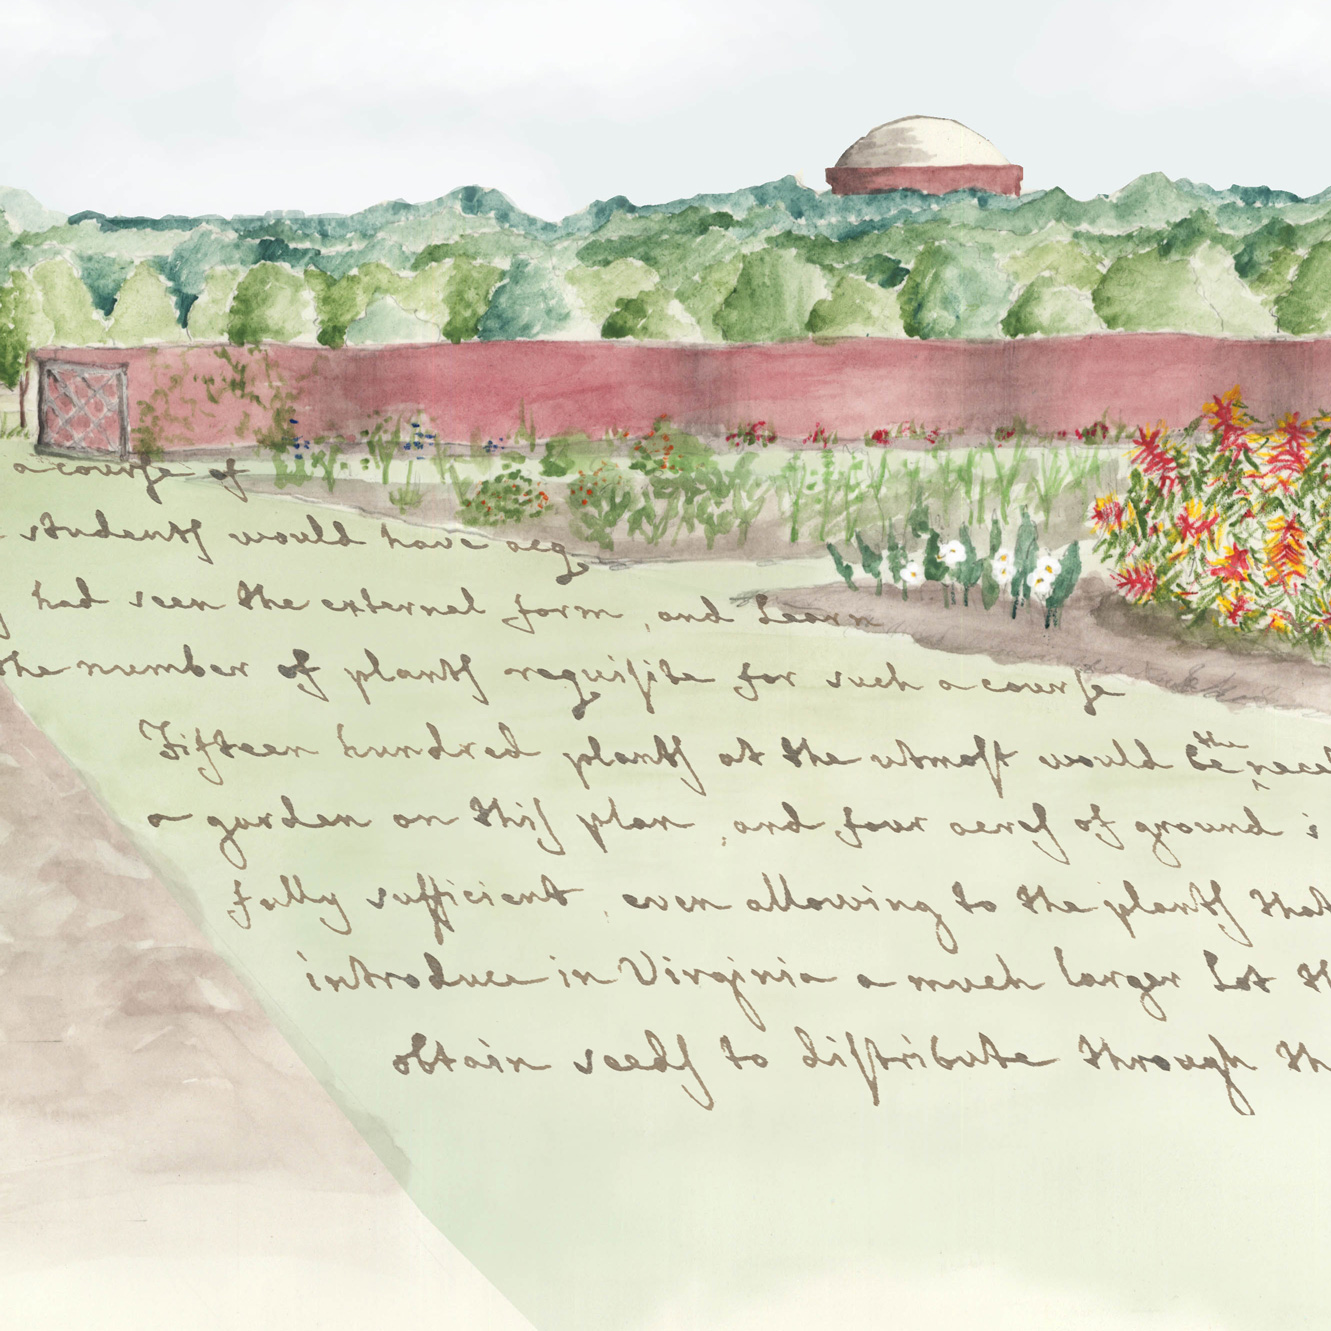 a course of
students would have acq
had seen the external form, and Learn
the number of plants requisite for such a course
Fifteen hundred plants at the utmost would be the nece
a garden on this plan, and four acres of ground i
fully sufficient, even allowing to the plants that
introduce in Virginia a much larger Lot th
obtain seeds to distribute through th